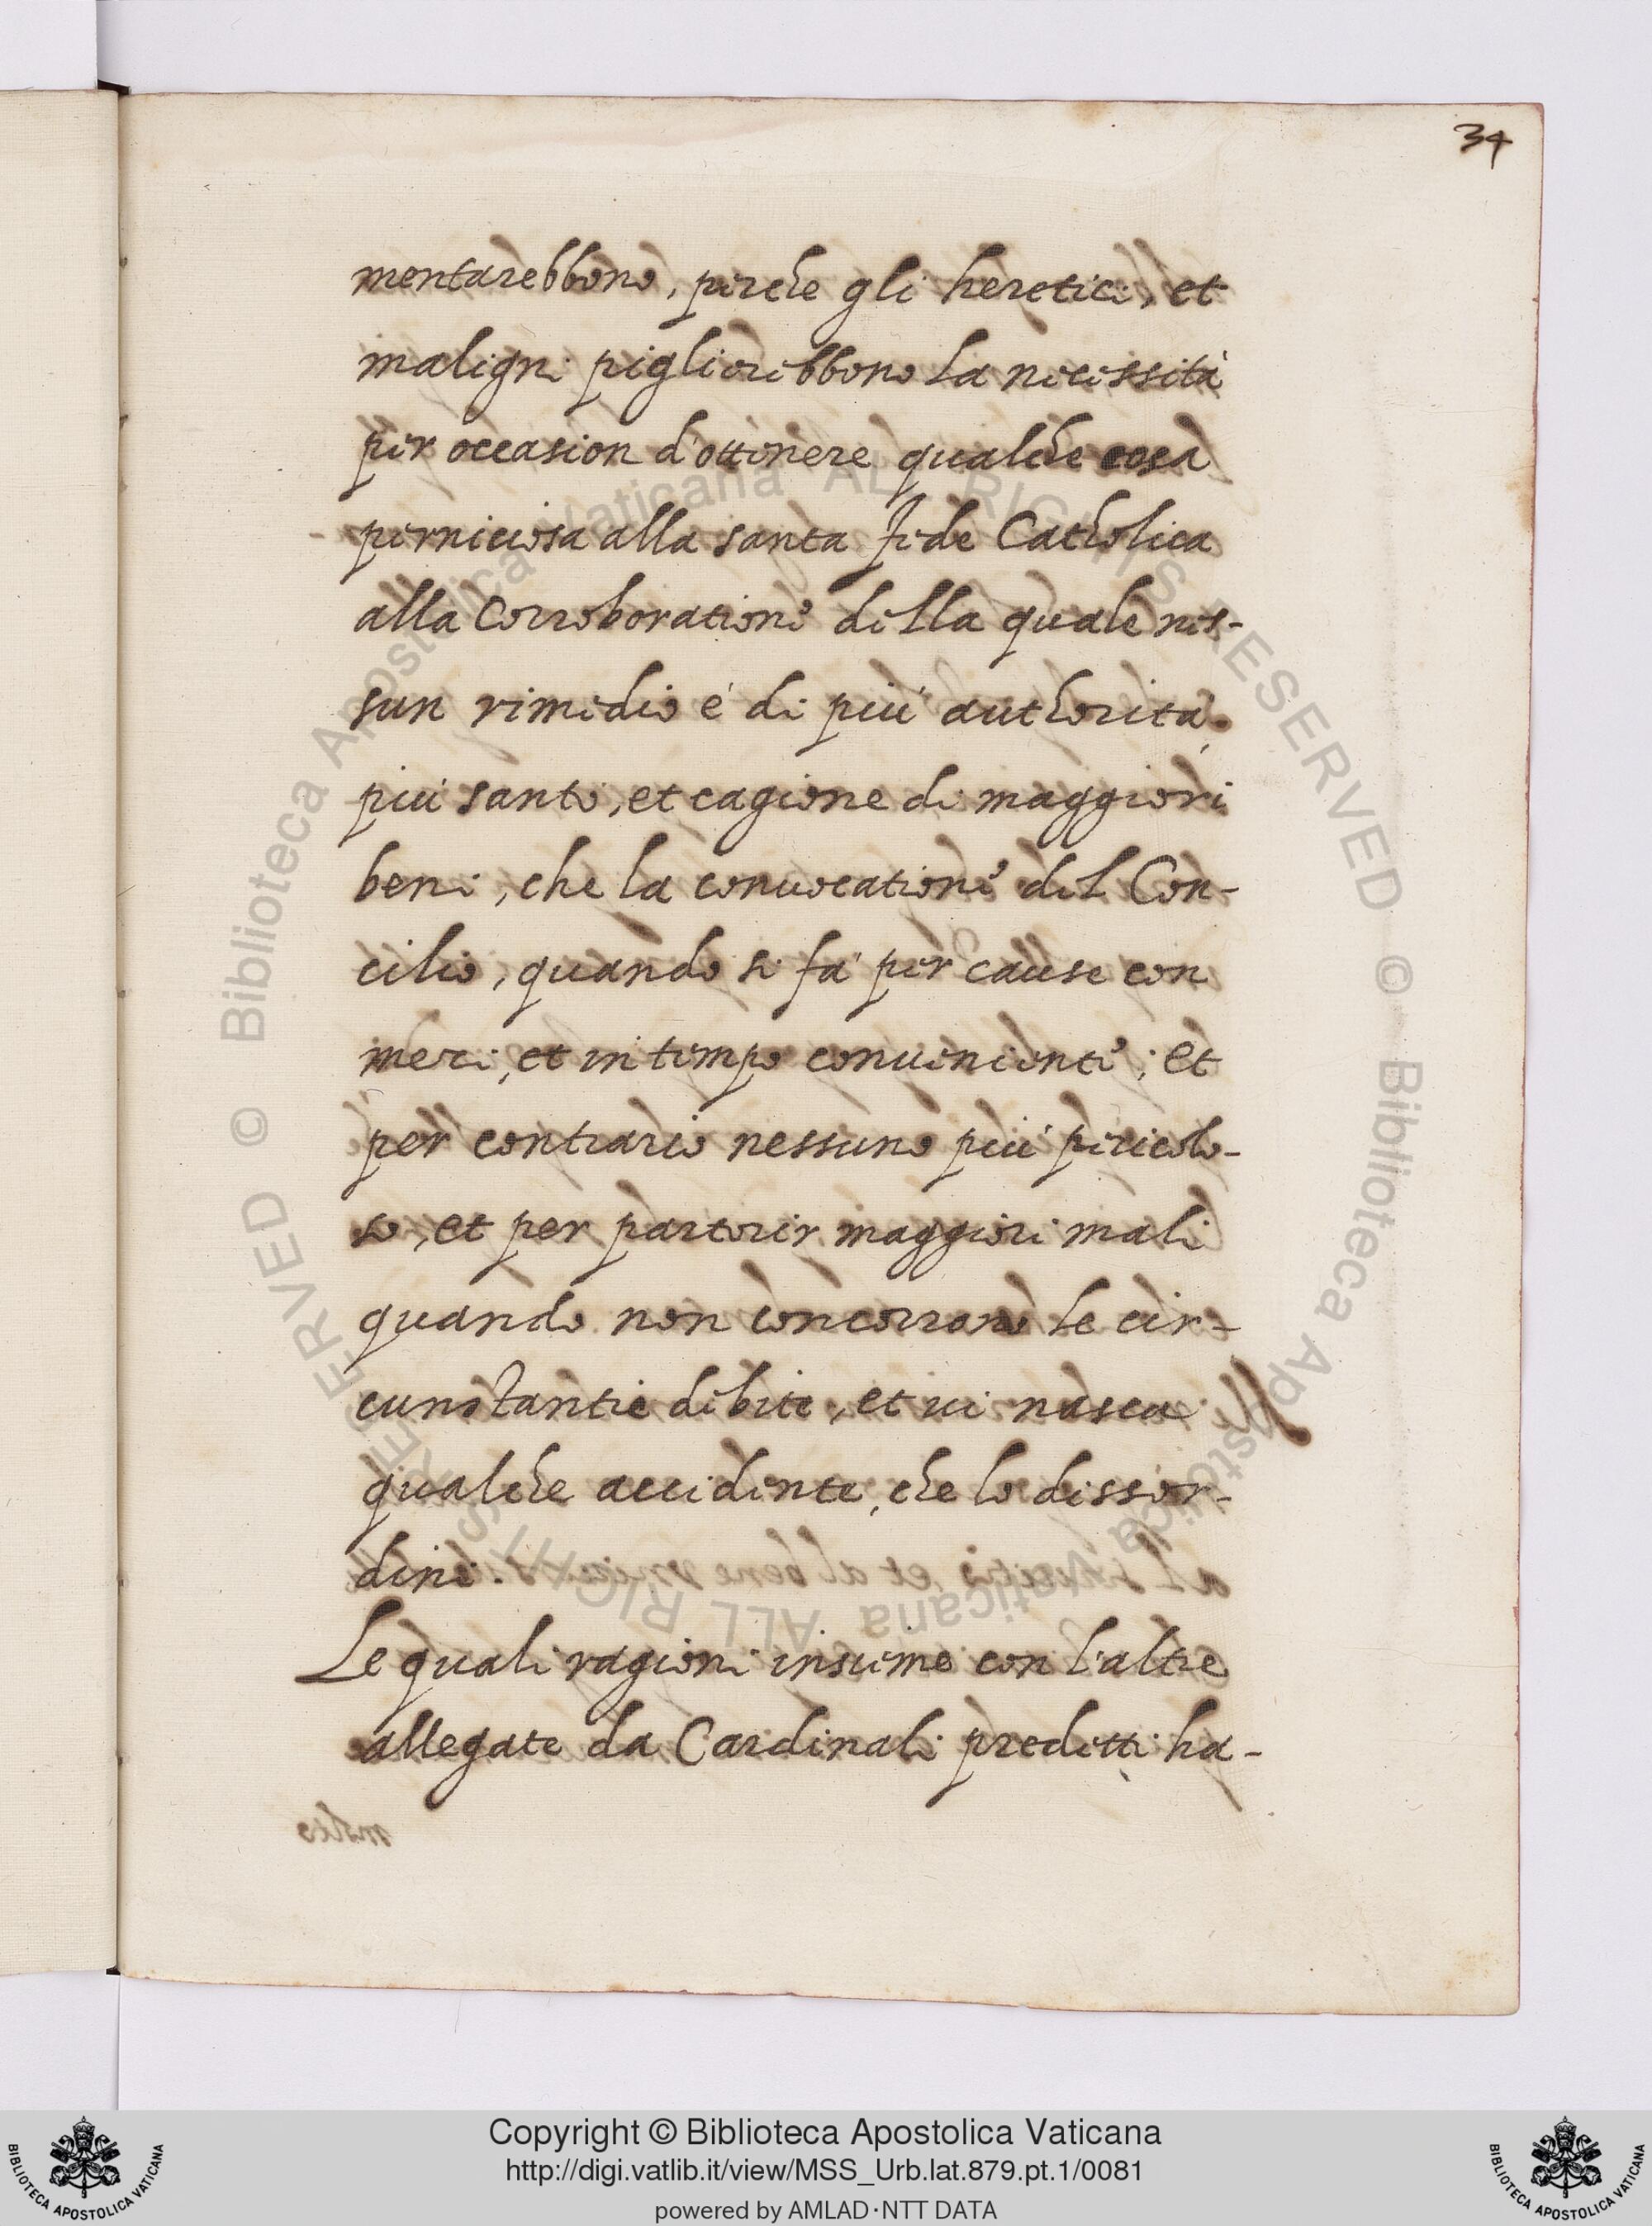 34
mentarebbono, perche gli heretici, et
maligni pigliarebbono la necessità
per occasion d'ottenere qualche cosa
perniciosa alla santa fede Catholica
alla Corroboratione della quale nes-
sun rimedio è di più authorità,
più santo, et cagione di maggiori
beni, che la conuocatione del Con-
cilio, quando si fà per cause con
merci, et in tempo conueniente; et
per contrario nessuno più pericolo-
so, et per partorir maggiori mali
quando non concorrono le cir-
cunstantie debite, et ui nasca
qualche accidente, che lo dissor-
dini.
Le quali ragioni insieme con l'altre
allegate da Cardinali predetti ha-
Copyright © Biblioteca Apostolica Vaticana
http://digi.vatlib.it/view/MSS_Urb.lat.879.pt.1/0081
powered by AMLAD·NTT DATA
BIBLIOTECA APOSTOLICA VATICANA
BIBLIOTECA APOSTOLICA VATICANA
© Biblioteca Apostolica Vaticana ALL RIGHTS RESERVED
© Biblioteca Apostolica Vaticana ALL RIGHTS RESERVED